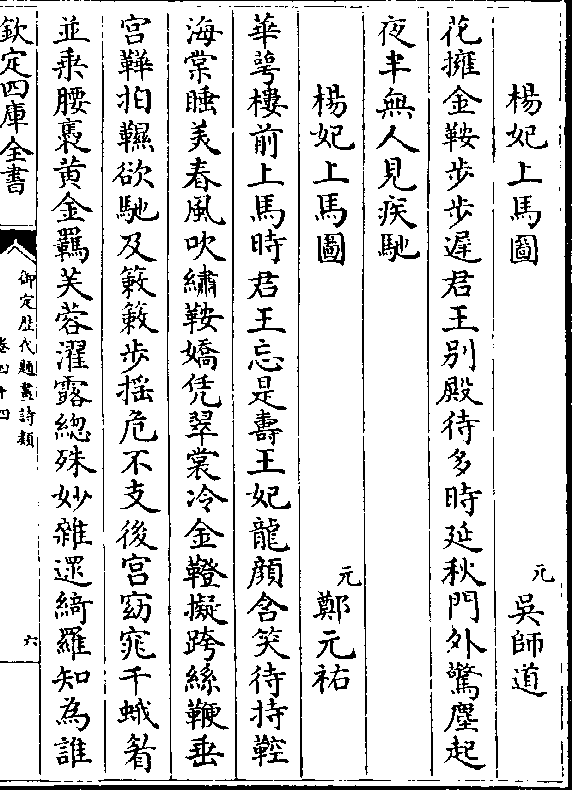 楊妃上馬圖
元 吳師道
花擁金鞍步步遲君王别殿待多時延秋門外驚塵起
夜半無人見疾馳
楊妃上馬圖
元 鄭元祐
華萼樓前上馬時君王忘是壽王妃龍顔含笑待持鞚
海棠睡美春風吹繡鞍嬌凭翠裳冷金鐙擬跨絲鞭垂
宫鞾拍䩞欲馳及簌簌步揺危不支後宫窈窕千蛾眉
並乘腰褭黄金羈芙蓉濯露總殊妙雜遝綺羅知為誰
欽定四庫全書
御定歷代題畫詩類
卷四十四
六